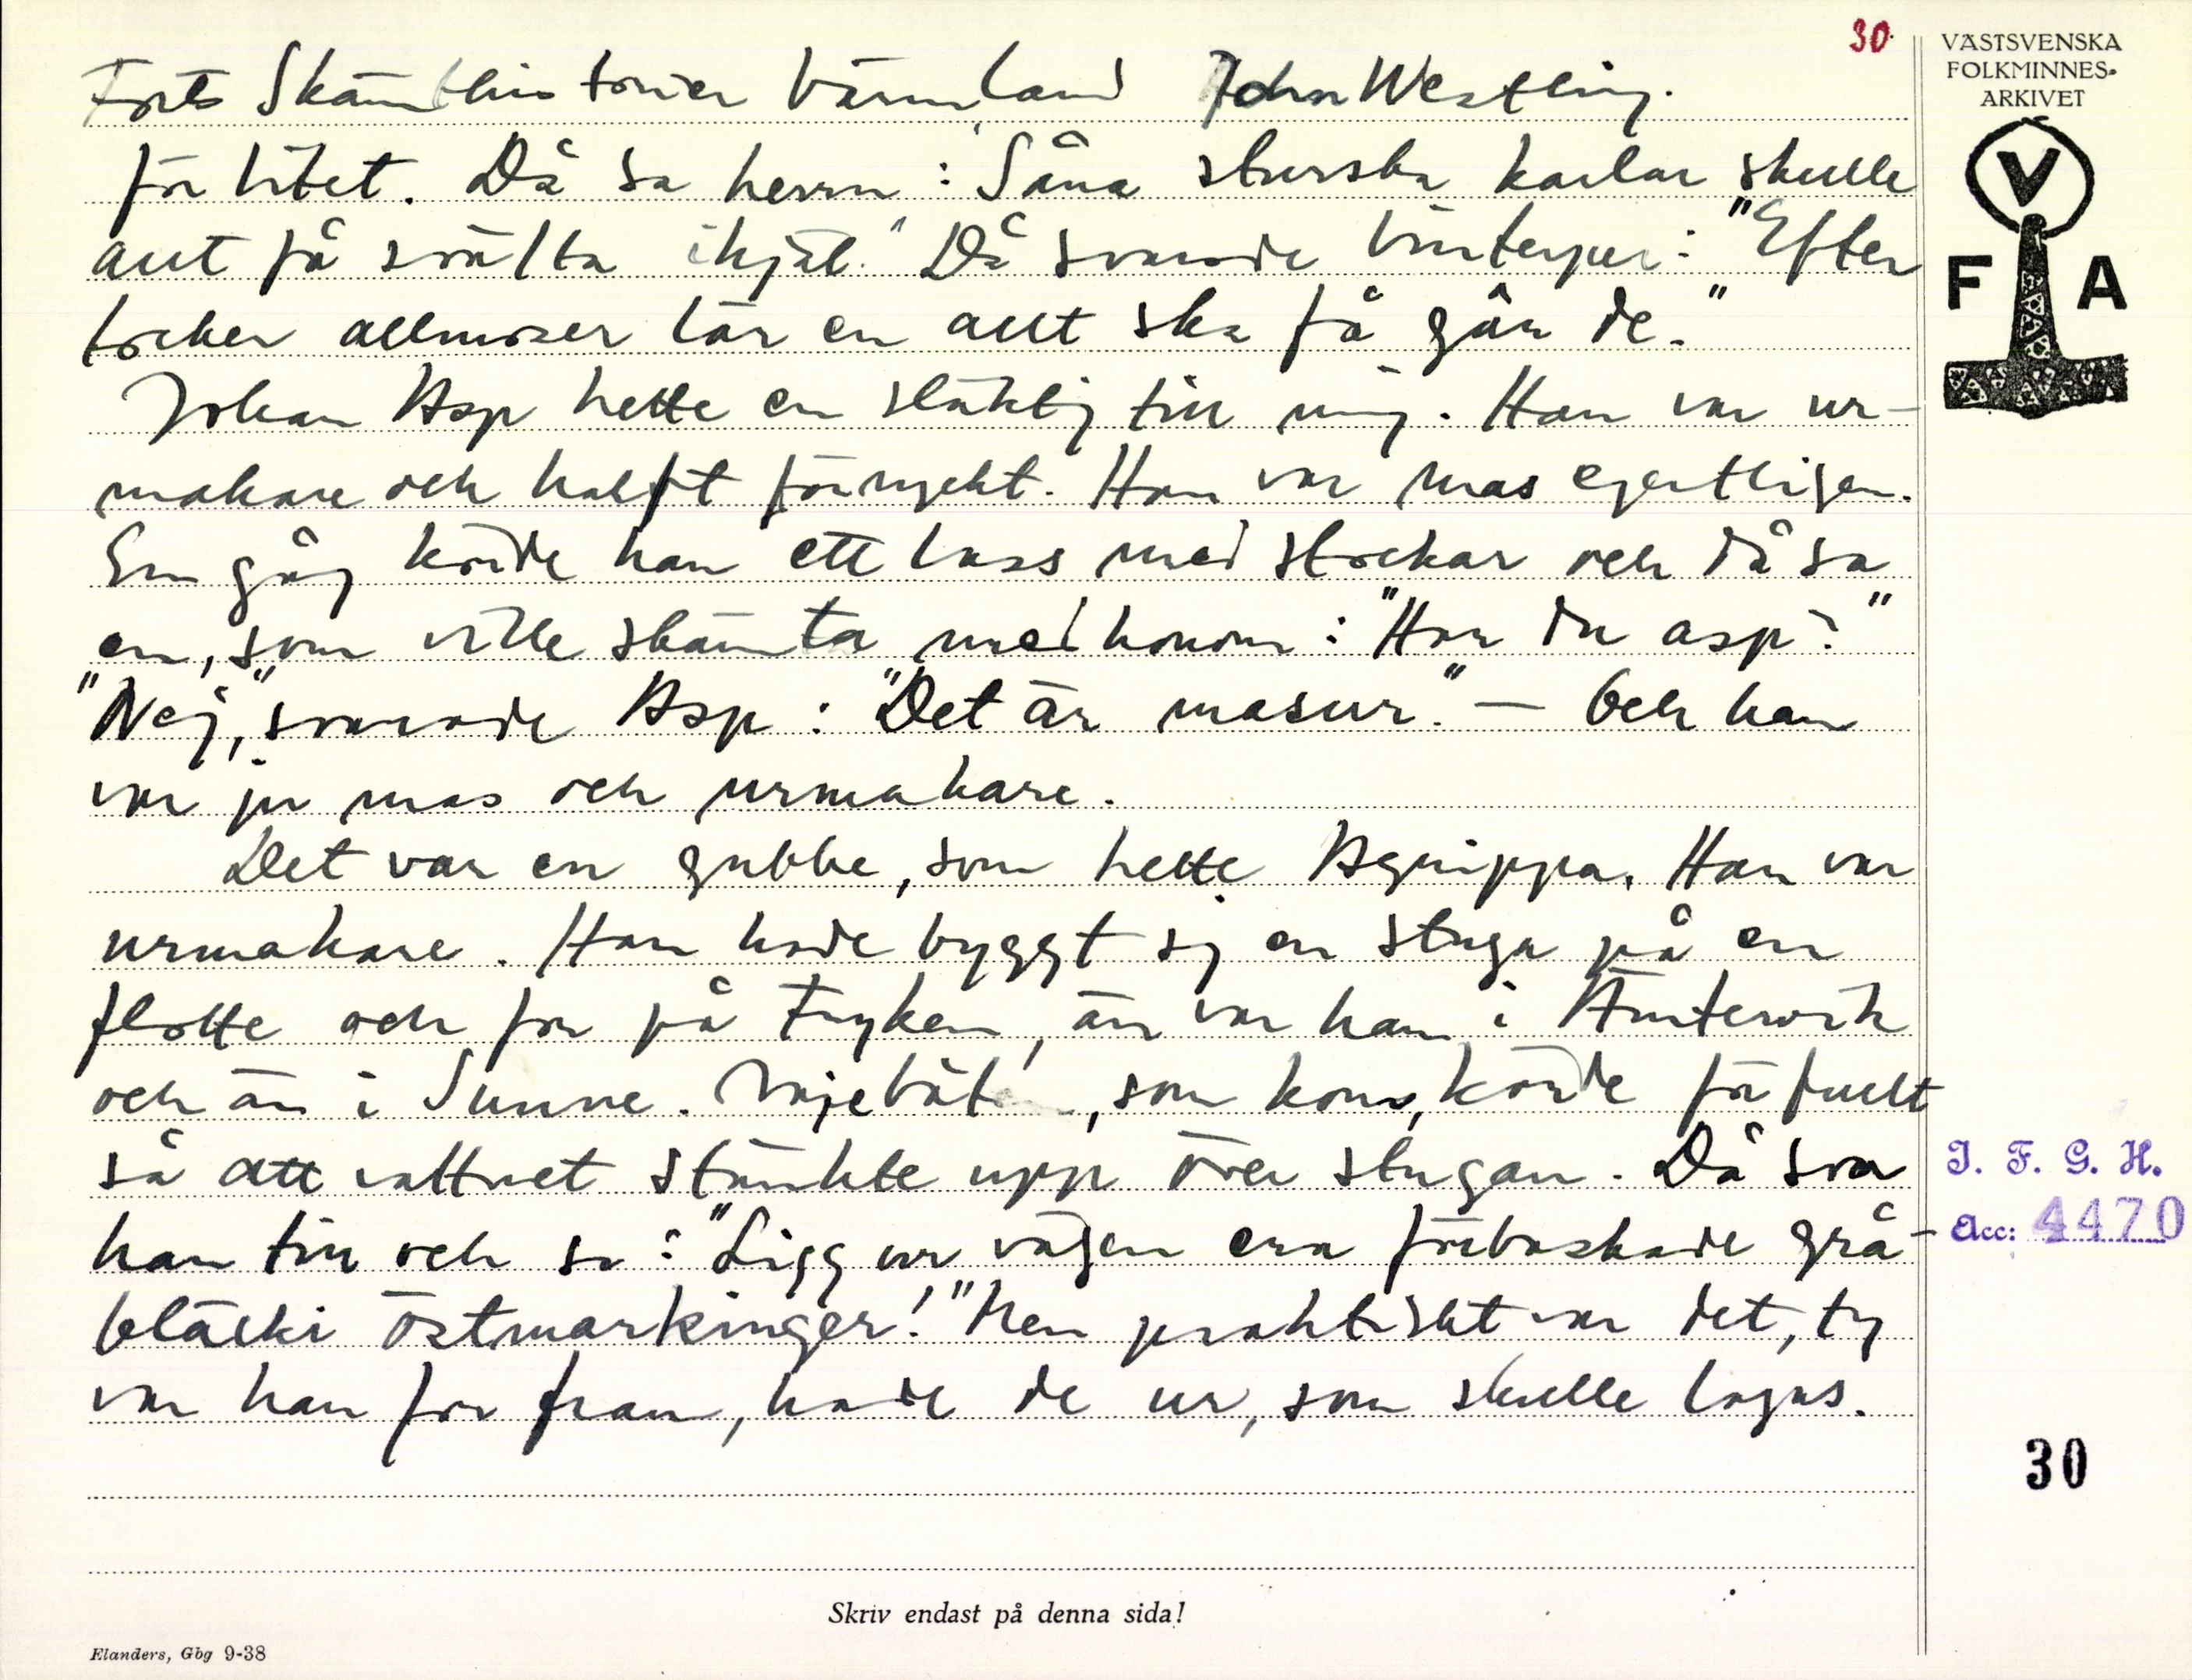 30
VÄSTSVENSKA
FOLKMINNES-
ARKIVET
V
F A
Forts Skämthistorier Värmland John Westling.
för litet. Då sa herrn: "Såna sturska karlar skulle
allt få svälta ihjäl." Då svarade Vinterper: "Efter
tocker allmoser lär en allt ska få gära de."
Johan Asp hette en släktig till mig. Han var ur-
makare och halft förryckt. Han var mas egentligen.
En gång körde han ett lass med stockar och då sa
en, som ville skämta med honom: "Har du asp?"
"Nej," svarade Asp: "Det är masur." – Och han
var ju mas och urmakare.
Det var en gubbe, som hette Agrippa. Han var
urmakare. Han hade byggt sig en stuga på en
flotte och for på Fryken, än var han i Ämtervik
och än i Sunne. Nöjebåten, som kom, körde för fullt
så att vattnet stänkte upp över stugan. Då svor
han till och sa: "Ligg ur vägen era förbaskade grå-
bläcki östmarkinger!" Men praktiskt var det, ty
var han for fram, hade de ur, som skulle lagas.
I. F. G. H.
Acc: 4470
30
Skriv endast på denna sida!
Elanders, Gbg 9-38